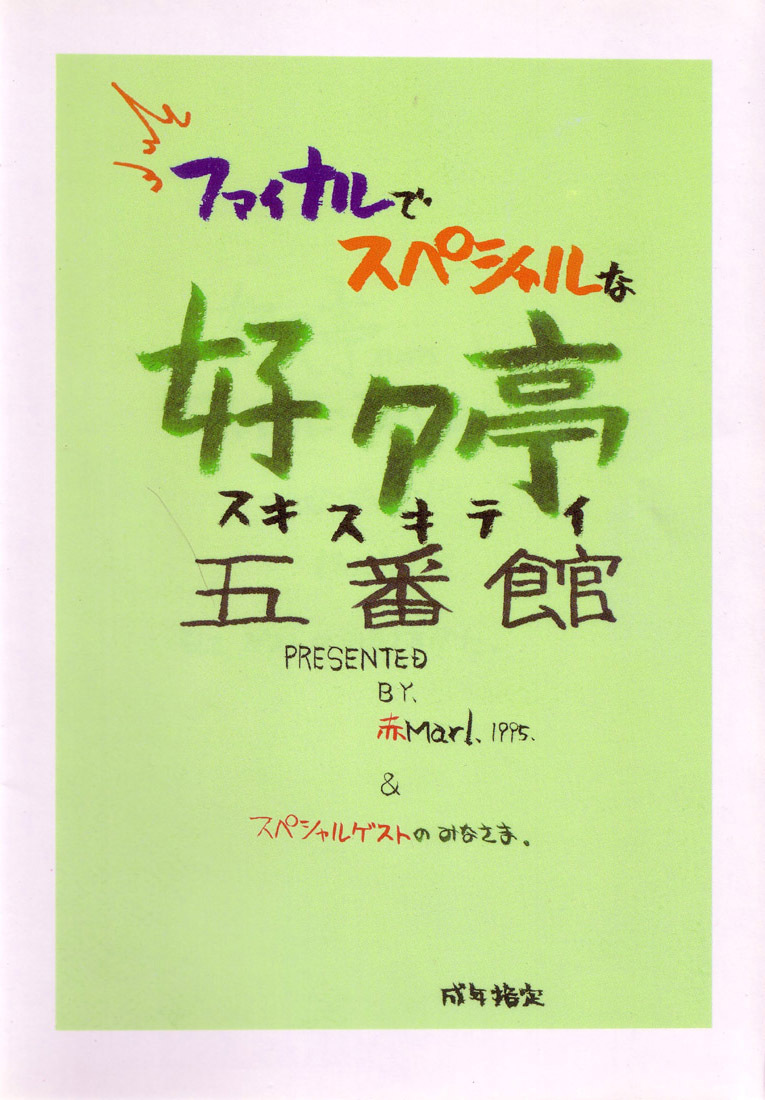 ファイナルで
スペシャルな
好々亭
スキスキテイ
五番館
PRESENTED
BY.
赤Marl. 1995.
&
スペシャルゲストのみなさま。
成年指定